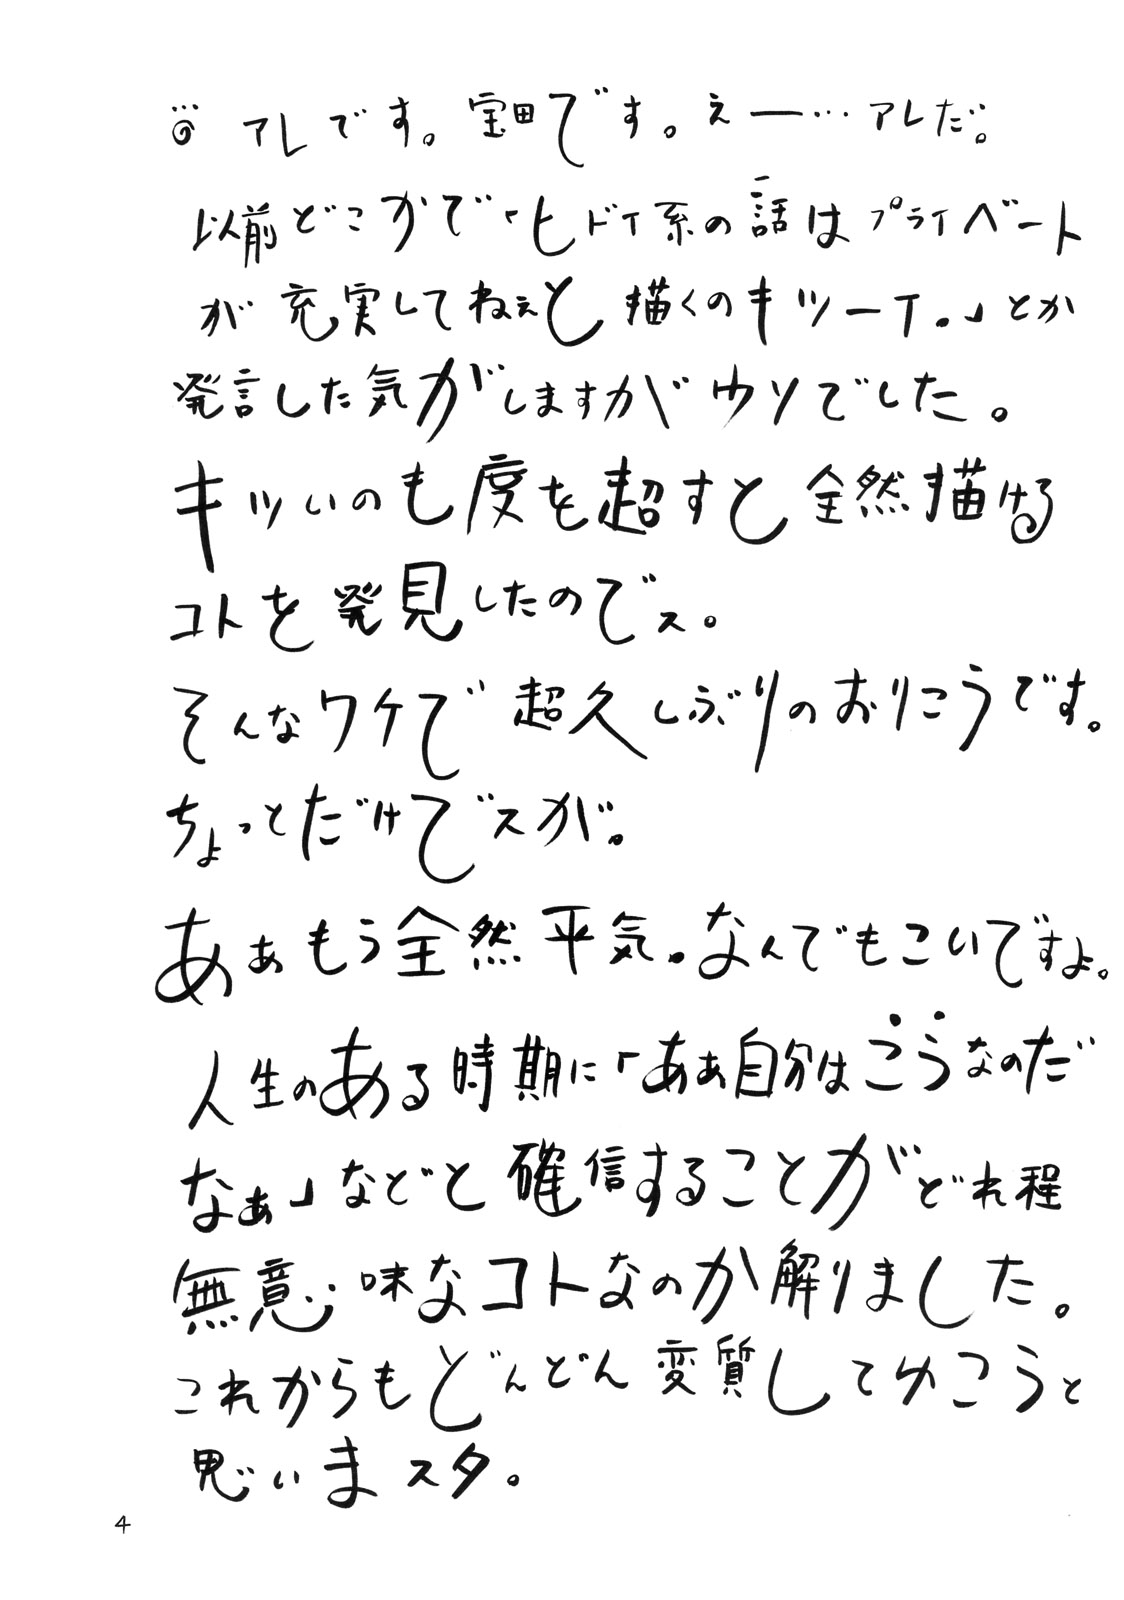 アレです。宝田です。えー…アレだ。
以前どこかで「ヒドイ系の話はプライベート
が充実してねぇと描くのキツーイ。」とか
発言した気がしますがウソでした。
キツいのも度を超すと全然描ける
コトを発見したのでス。
そんなワケで超久しぶりのおりこうです。
ちょっとだけでスが。
あぁもう全然平気。なんでもこいですよ。
人生のある時期に「あぁ自分はこうなのだ
なぁ」などと確信することがどれ程
無意味なコトなのか解りました。
これからもどんどん変質してゆこうと
思いまスタ。
4